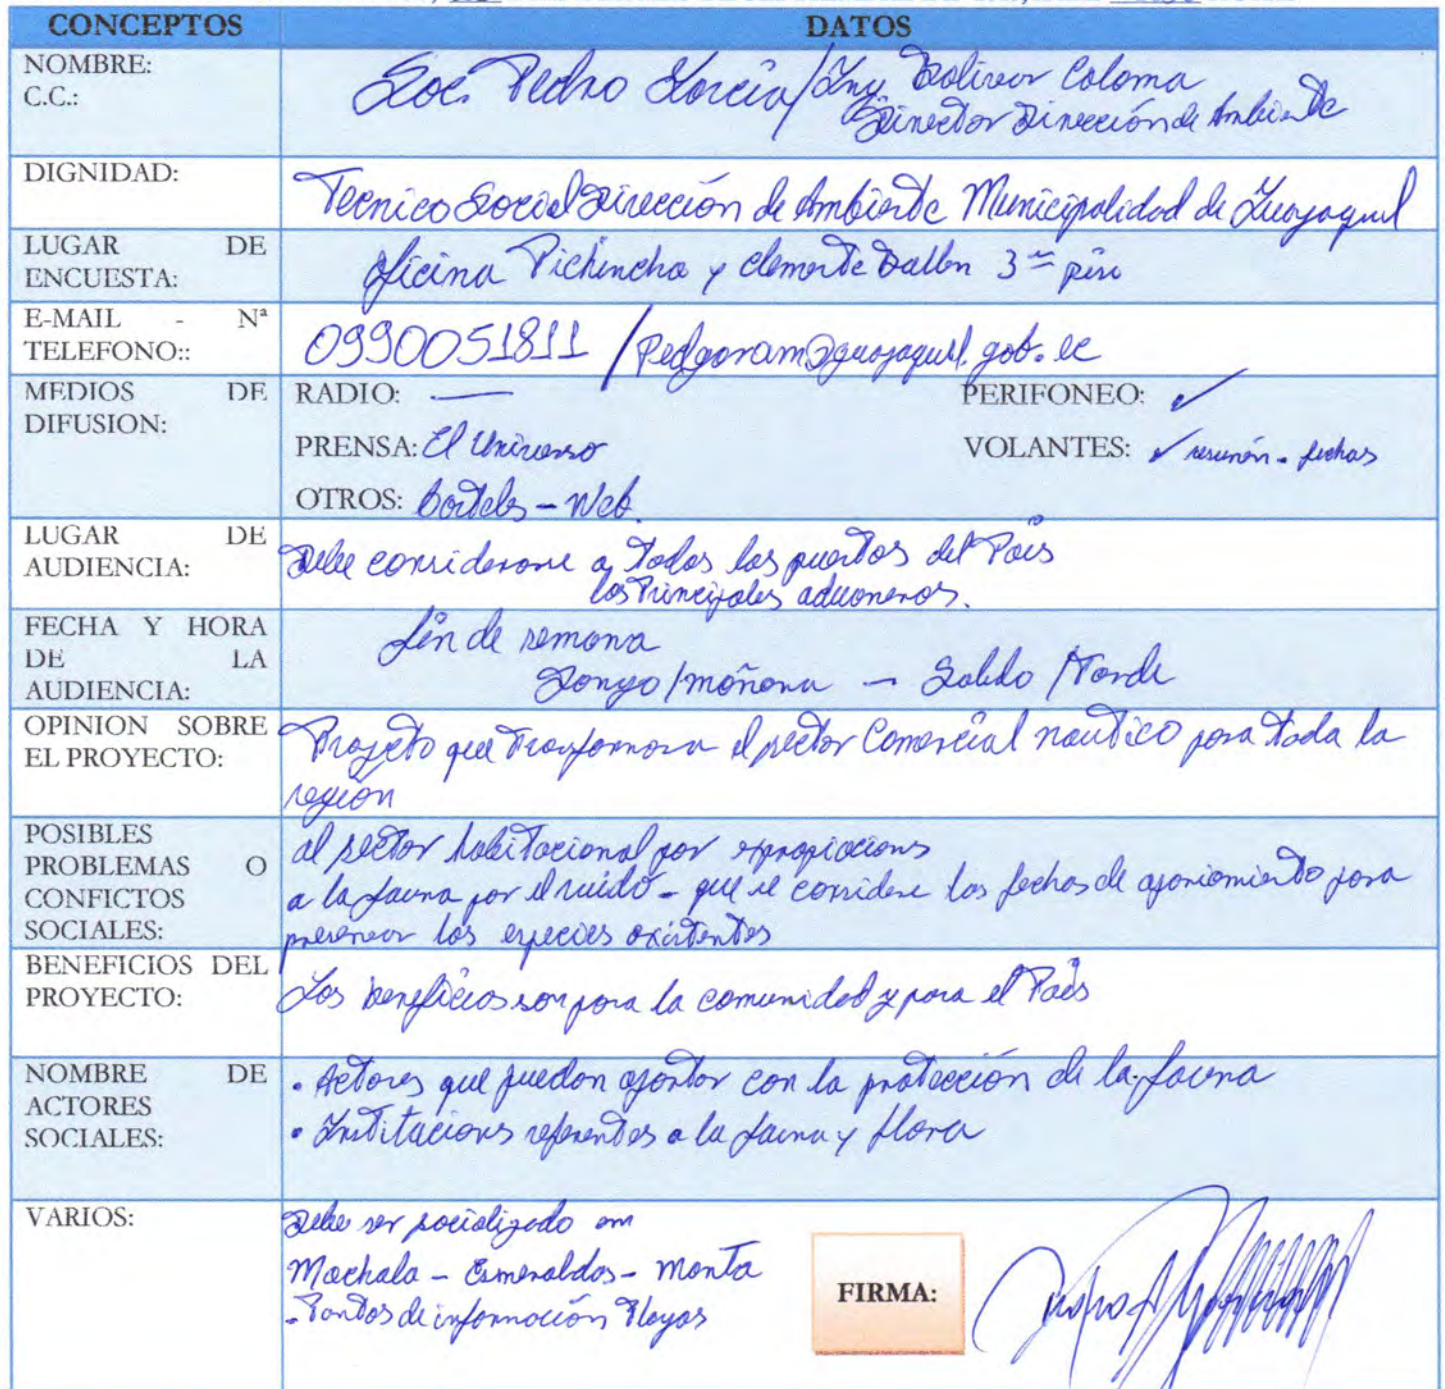 CONCEPTOS DATOS
NOMBRE: Soc. Pedro García / Ing. Bolivar Coloma
C.C.: Director Dirección de Ambiente
DIGNIDAD: Tecnico Social Dirección de Ambiente Municipalidad de Guayaquil
LUGAR DE ENCUESTA: oficina Pichincha y Clemente Ballen 3er piso
E-MAIL - Nª TELEFONO:: 0990051811 / pedgaram@guayaquil.gob.ec
MEDIOS DE DIFUSION: RADIO: — PERIFONEO: ✓
PRENSA: El Universo VOLANTES: ✓ resumén - fechas
OTROS: Carteles - Web.
LUGAR DE AUDIENCIA: Debe considerarse a todos los puertos del País
los Principales aduaneros.
FECHA Y HORA DE LA AUDIENCIA: fin de semana
/ mañana — Sabado / Tarde
OPINION SOBRE EL PROYECTO: Proyecto que Trasformara el sector Comercial nautico para toda la
región
POSIBLES PROBLEMAS O CONFICTOS SOCIALES: al sector habitacional por expropiacions
a la fauna por el ruido - que se considere las fechas de apariamiento para
preservar las especies existentes
BENEFICIOS DEL PROYECTO: Los beneficios son para la comunidad y para el País
NOMBRE DE ACTORES SOCIALES: • Actores que puedan aportar con la protección de la fauna
• Institucions referentes a la fauna y flora
VARIOS: Debe ser socializado en
Machala - Esmeraldas - Manta
- Puntos de información Playas
FIRMA: